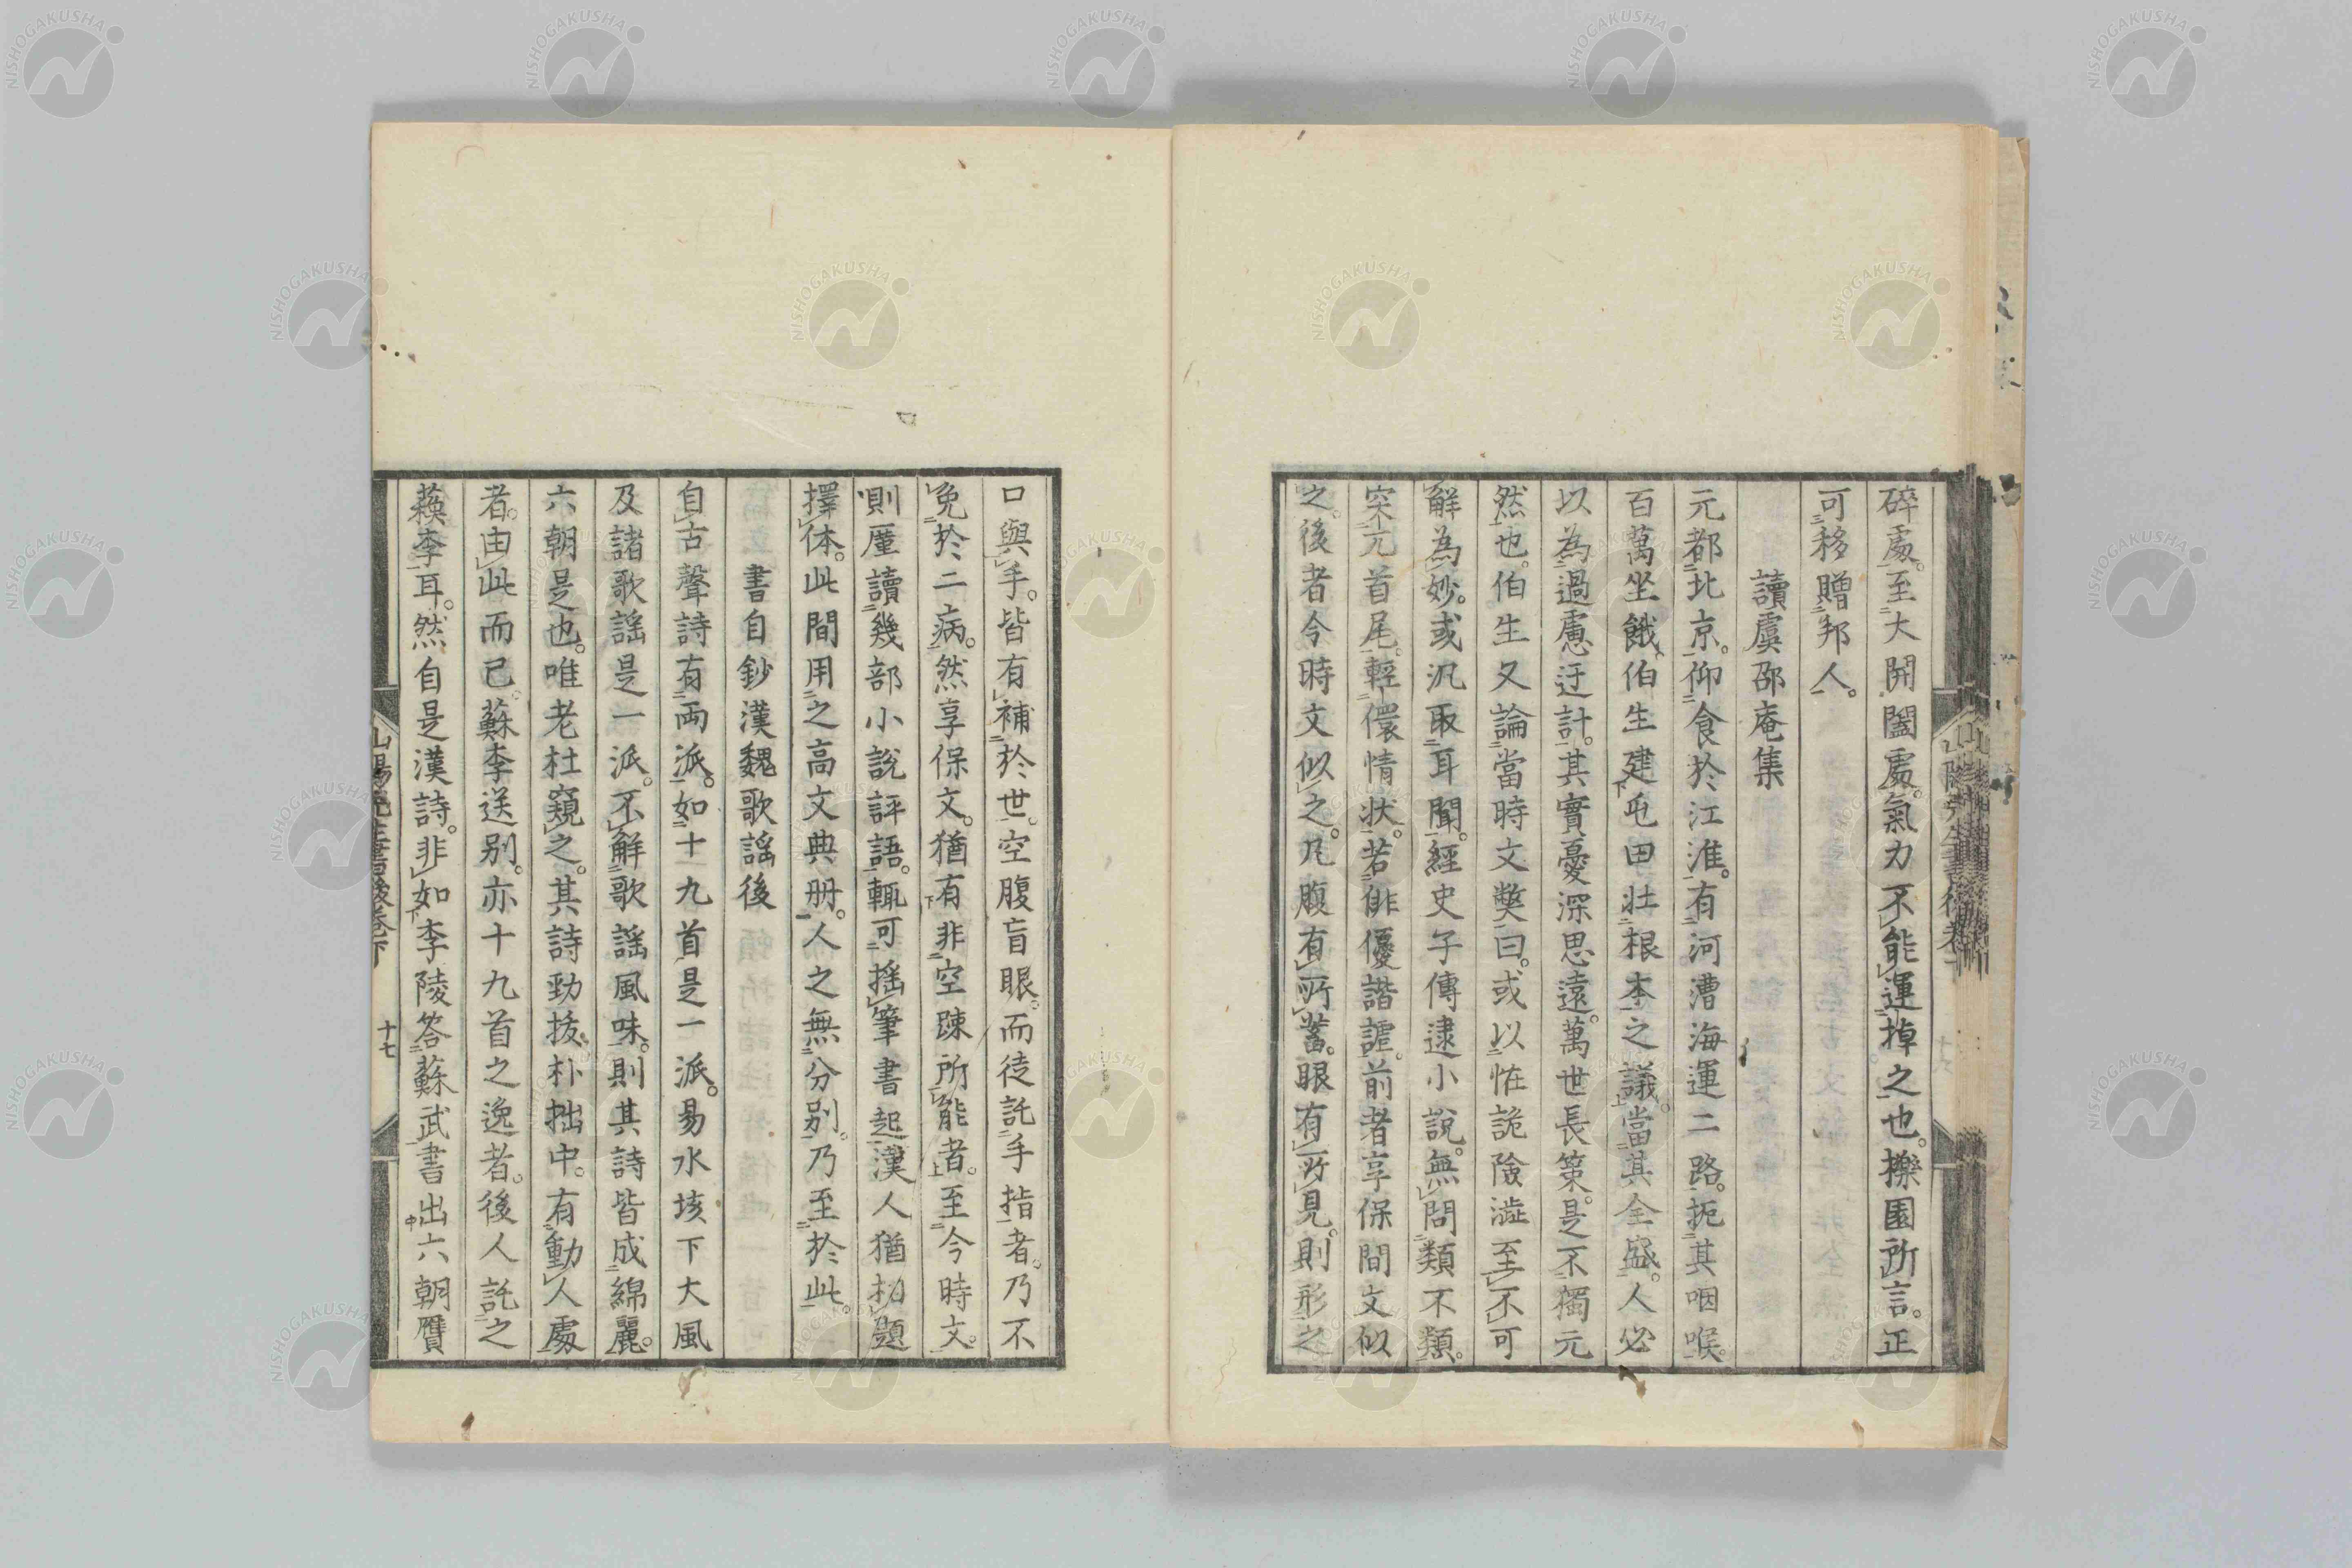 碎處。至大開闔處。氣力不能運掉之也。櫟園所言。正
可移贈邦人。
讀虞邵庵集
元都北京。仰食於江淮。有河漕海運二路。扼其咽喉。
百萬坐餓。伯生建屯田壯根本之議。當其全盛。人必
以為過慮迂計。其實憂深思遠。萬世長策。是不獨元
然也。伯生又論當時文獘曰。或以恠詭險澁至不可
解為妙。或汎取耳聞。經史子傳逮小說。無問類不類。
突兀首尾。輕儇情狀。若俳優諧謔。前者享保間文似
之。後者今時文似之。凡腹有所蓄。眼有所見。則形之
口與手。皆有補於世。空腹盲眼。而徒託手指者。乃不
免於二病。然享保文。猶有非空疎所能者。至今時文。
則厪讀幾部小說評語。輒可搖筆書起漢人猶
擇体。此間用之高文典册。人之無分别。乃至於此。
書自鈔漢魏歌謠後
自古聲詩有両派。如十九首是一派。易水垓下大風
及諸歌謠是一派。不解歌謠風味。則其詩皆成綿麗。
六朝是也。唯老杜窺之。其詩勁拔朴拙中。有動人處
者。由此而已。蘇李送别。亦十九首之逸者。後人託之
蘇李耳。然自是漢詩。非如李陵答蘇武書出六朝贋
山陽先生書後卷下
十七
NISHOGAKUSHA